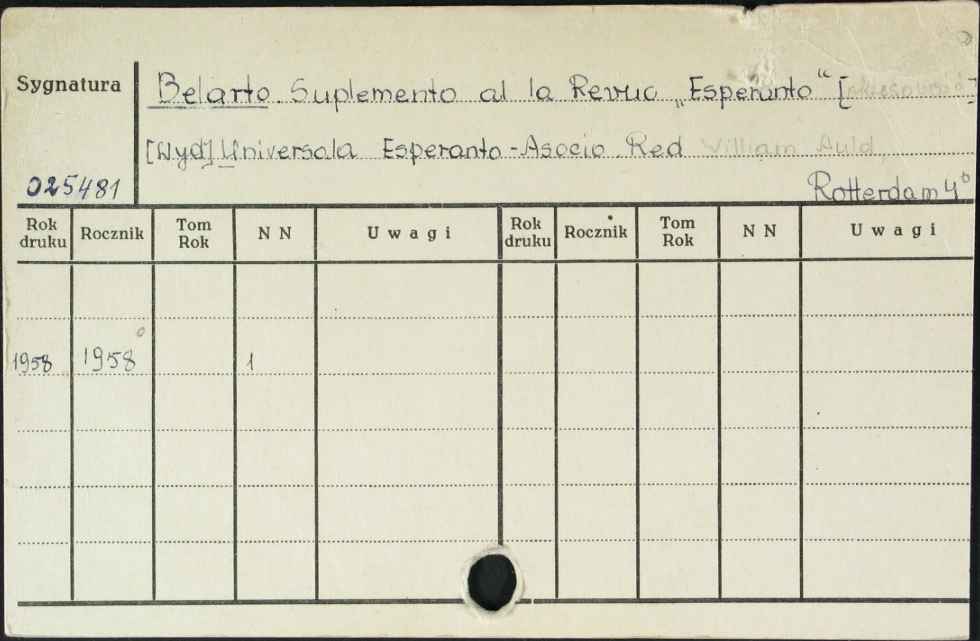 Sygnatura
Belarto. Suplemento al la Revuo „Esperanto“ [
[Wyd] Universala Esperanto-Asocio. Red William Auld,
025481
Rotterdam 4°
Rok druku Rocznik Tom Rok N N Uwagi Rok druku Rocznik Tom Rok N N Uwagi
1958 1958 1